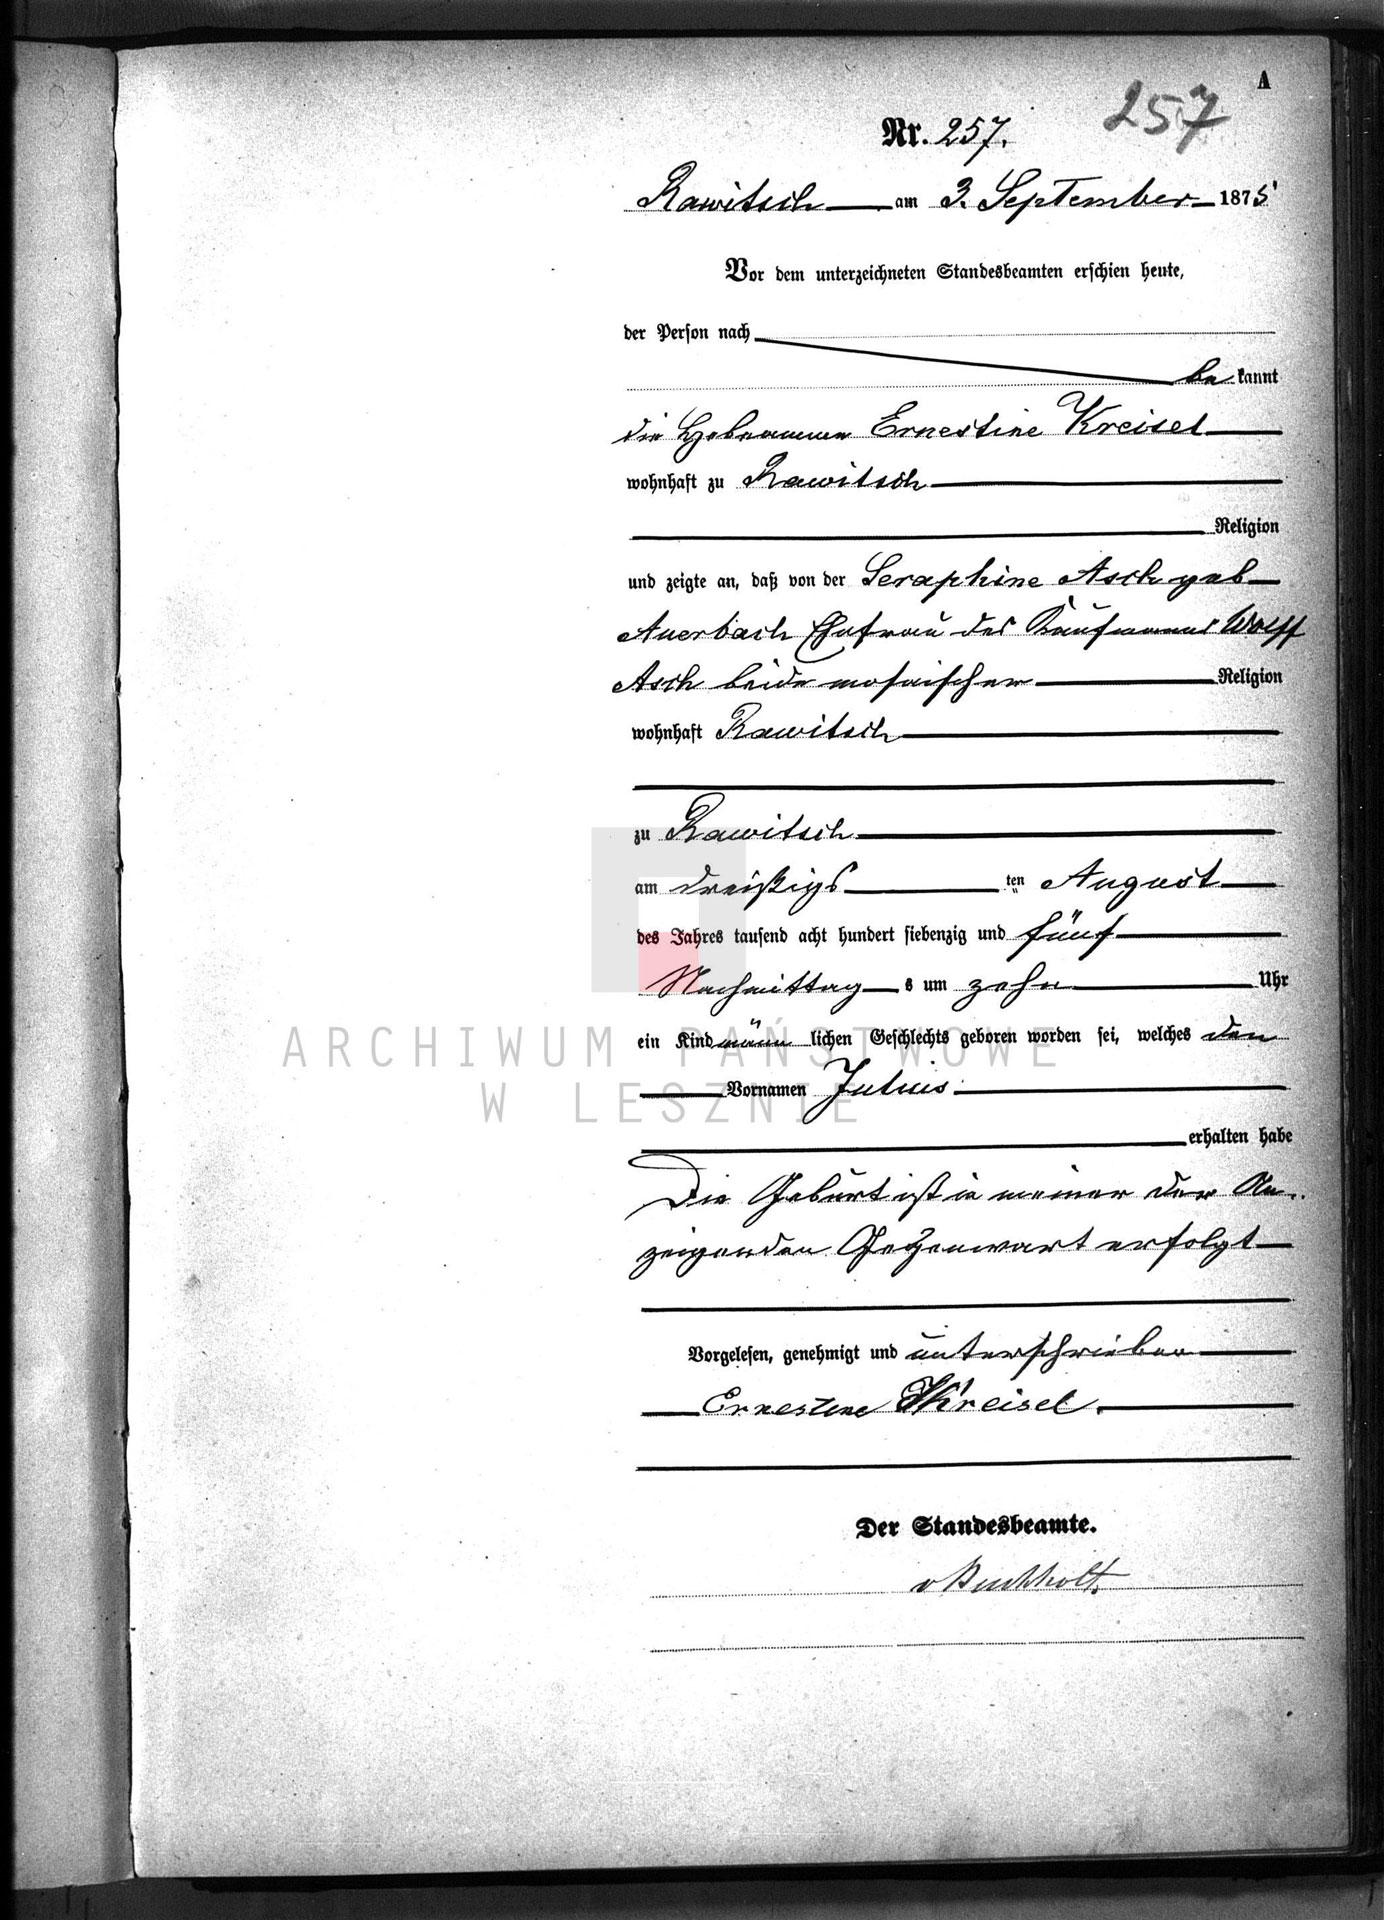 A
257
Nr. 257.
Rawitsch am 3. September 1875
Vor dem unterzeichneten Standesbeamten erschien heute,
der Person nach
be kannt
die Hebeamme Ernestine Kreisel
wohnhaft zu Rawitsch
Religion
und zeigte an, daß von der Seraphine Asch geb
Auerbach Ehefrau des Kaufmanns Wolff
Asch beide mosaischer Religion
wohnhaft Rawitsch
zu Rawitsch
am dreißigs ten August
des Jahres tausend acht hundert siebenzig und fünf
Nachmittag s um zehn Uhr
ein Kind männ lichen Geschlechts geboren worden sei, welches den
Vornamen Julius
erhalten habe
Die Geburt ist in meiner der An-
zeigenden Gegenwart erfolgt
Vorgelesen, genehmigt und unterschrieben
Ernestine Kreisel.
Der Standesbeamte.
v Buchholt.
ARCHIWUM PAŃSTWOWE
W LESZNIE